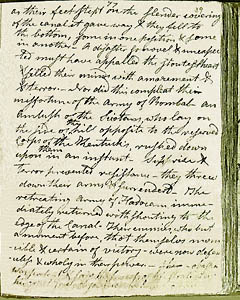 as their feet stept on the slender covering
of the canal it gave way & they fell to
the bottom, some in one position & some
in another. A disaster so novel & unexpec
ted must have appalled the stoutest heart
& filled their minds with amazement &
terror. Nor did this compleat their
misfortune of the Army of
Ambush of the Sciotans, who lay on
the side of hill opposite to the reserved
Corps of the Kentucks, rushed down
upon them in an instant. Surprise &
terror prevented resistance - they threw
down their arms & surrendered. The
retreating Army of imme
diately returned with shouting to the
edge of the Canal. Their enemies, who but
a moment before, thot themselves invin
cible & certain of victory - were now defence
less & wholly in their power